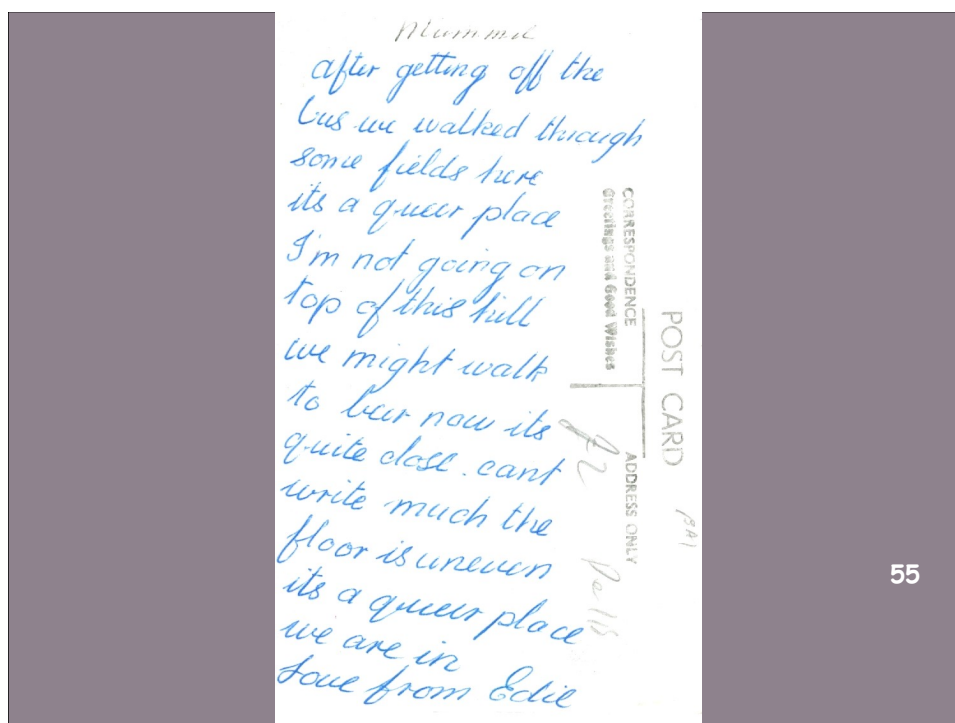 Mummie
after getting off the
bus we walked through
some fields here
its a queer place
I'm not going on
top of this hill
we might walk
to beer now its
quite close . cant
write much the
floor is uneven
its a queer place
we are in
Love from Edie
POST CARD
CORRESPONDENCE
Greetings and Good Wishes
ADDRESS ONLY
55